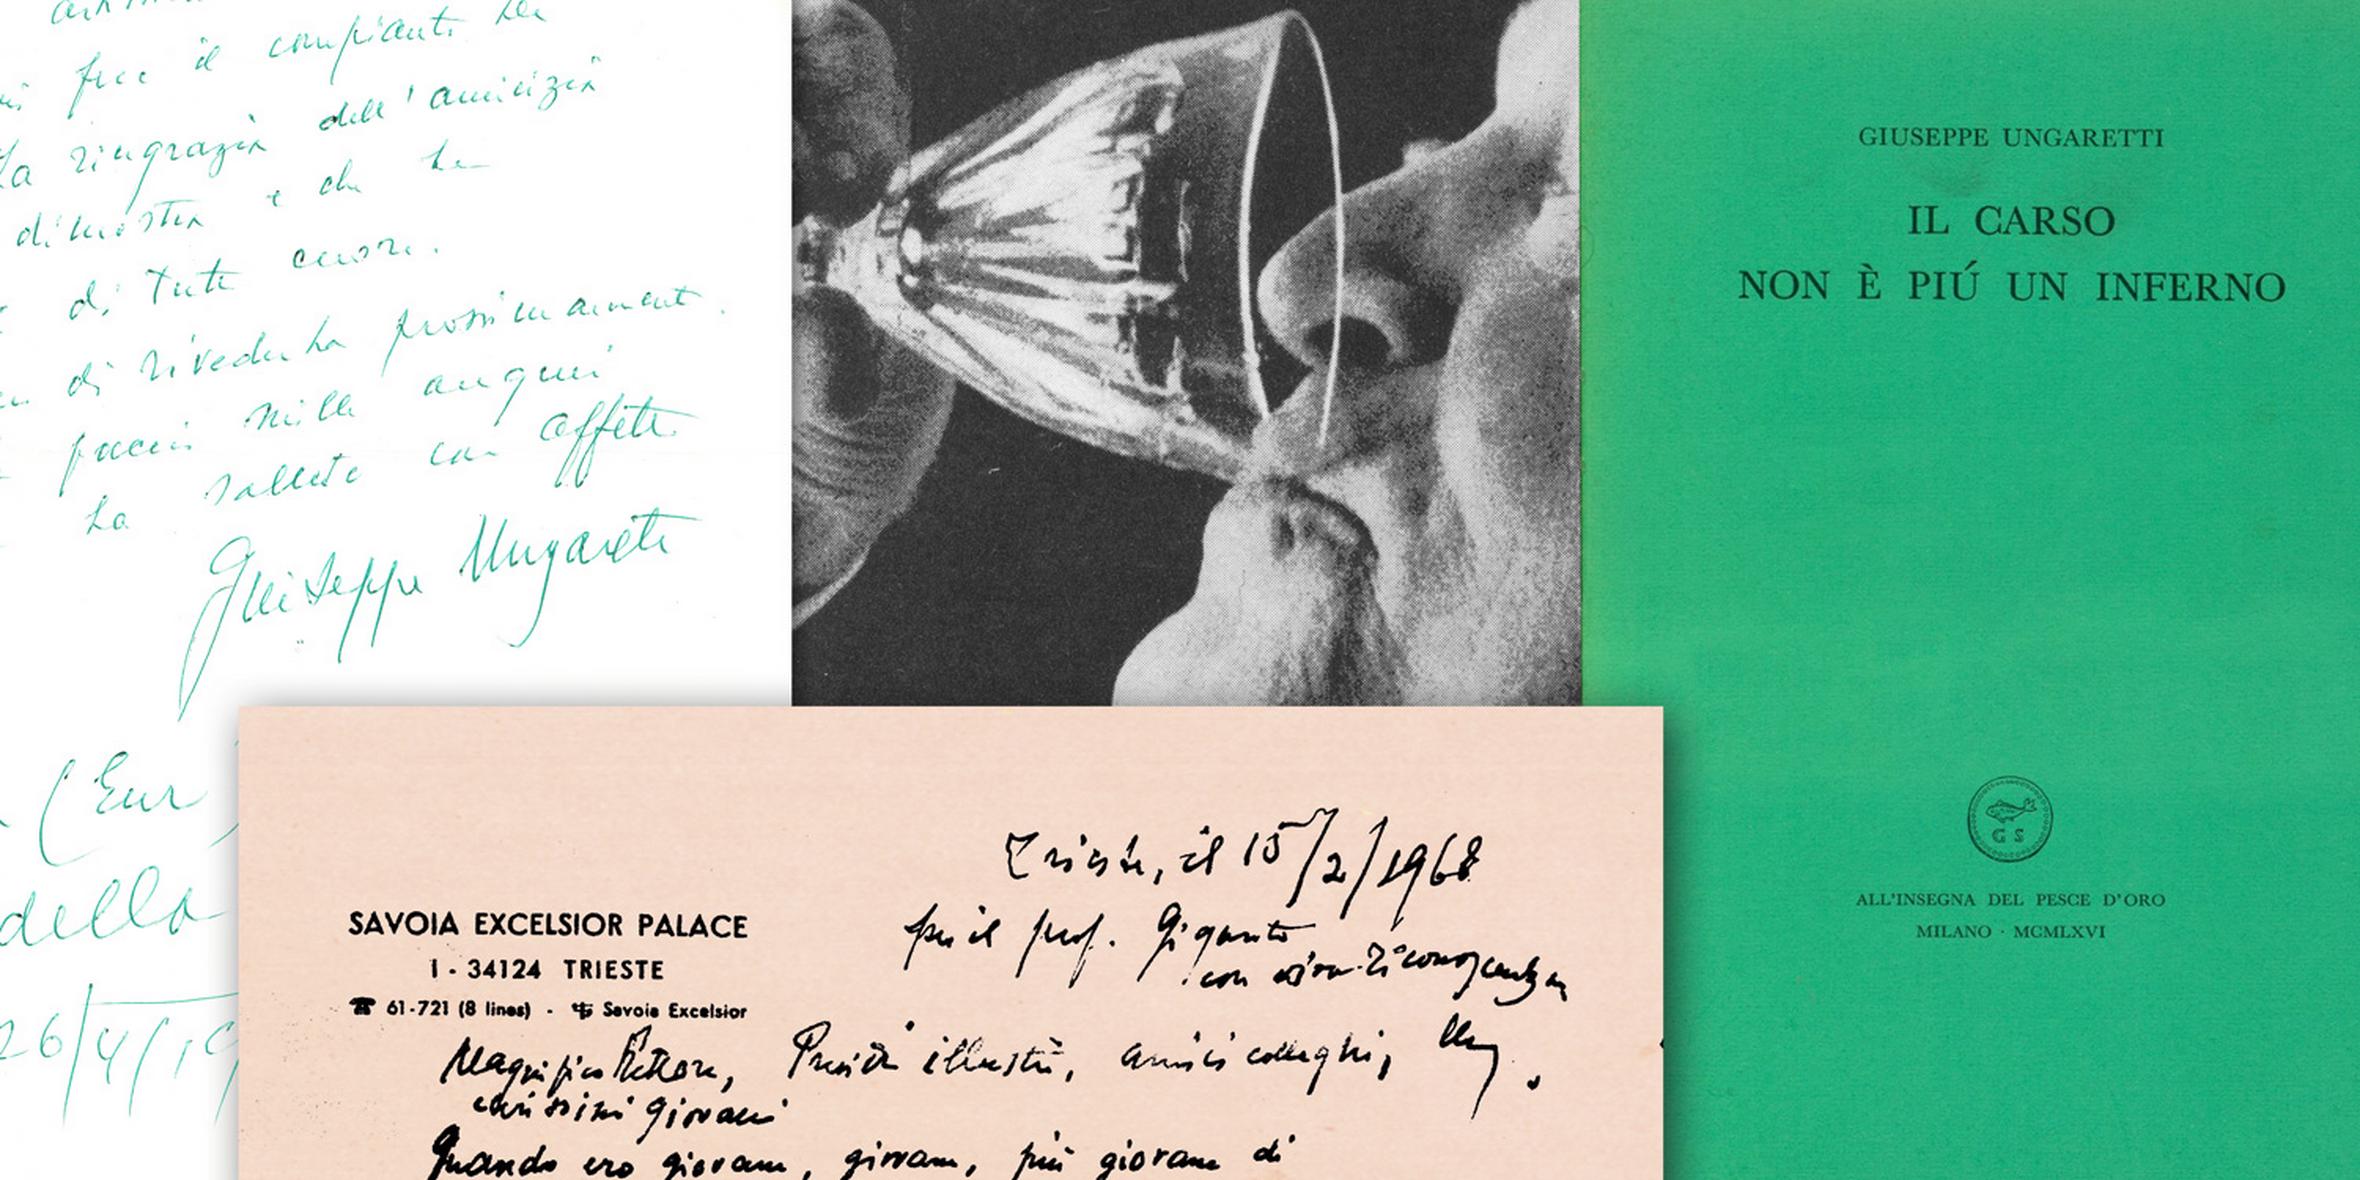 fece il compianto
La ringrazia dell'amicizia
dimostra e che ha
di tutto cuore.
di rivederla prossimamente.
faccio mille auguri
La saluto con affetto
Giuseppe Ungaretti
(Eur
della
26/4/19
GIUSEPPE UNGARETTI
IL CARSO
NON È PIÚ UN INFERNO
G S
ALL'INSEGNA DEL PESCE D'ORO
MILANO · MCMLXVI
SAVOIA EXCELSIOR PALACE
I - 34124 TRIESTE
61-721 (8 lines) - Savoia Excelsior
Trieste, il 15/2/1968
per il prof. Giganto
con viva riconoscenza
Magnifico Rettore, illustri, amici colleghi,
carissimi giovani
Quando ero giovane, giovane, più giovane di